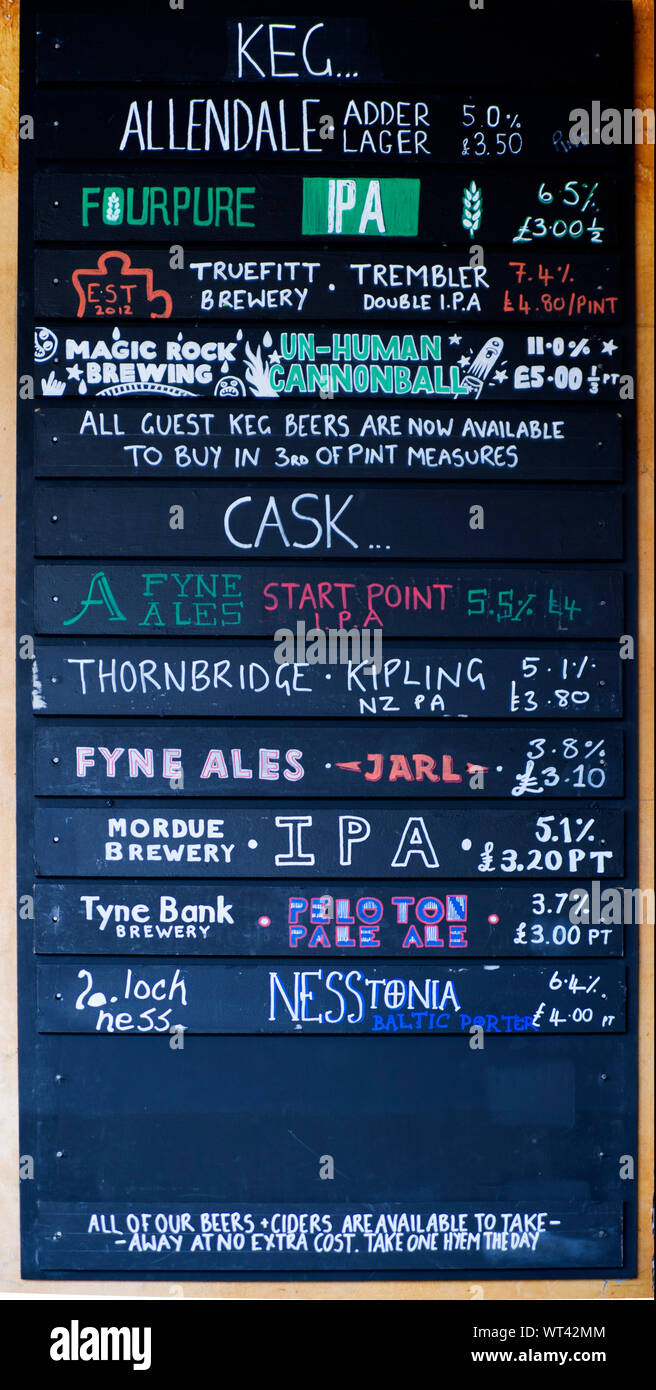 KEG...
ALLENDALE · ADDER LAGER 5.0% £3.50 Pint
FOURPURE IPA 6.5% £3.00 ½
EST 2012 TRUEFITT BREWERY · TREMBLER DOUBLE I.P.A 7.4% £4.80/PINT
MAGIC ROCK BREWING UN-HUMAN CANNONBALL 11.0% £5.00 ⅓ PT
ALL GUEST KEG BEERS ARE NOW AVAILABLE
TO BUY IN 3RD OF PINT MEASURES
CASK...
A FYNE ALES START POINT I.P.A 5.5% £4
THORNBRIDGE · KIPLING NZ PA 5.1% £3.80
FYNE ALES · JARL · 3.8% £3.10
MORDUE BREWERY · IPA · 5.1% £3.20 PT
Tyne Bank BREWERY · PELOTON PALE ALE · 3.7% £3.00 PT
loch ness NESSTONIA BALTIC PORTER 6.4% £4.00 PT
ALL OF OUR BEERS + CIDERS ARE AVAILABLE TO TAKE-
-AWAY AT NO EXTRA COST. TAKE ONE HYEM THE DAY
alamy
Image ID: WT42MM
www.alamy.com